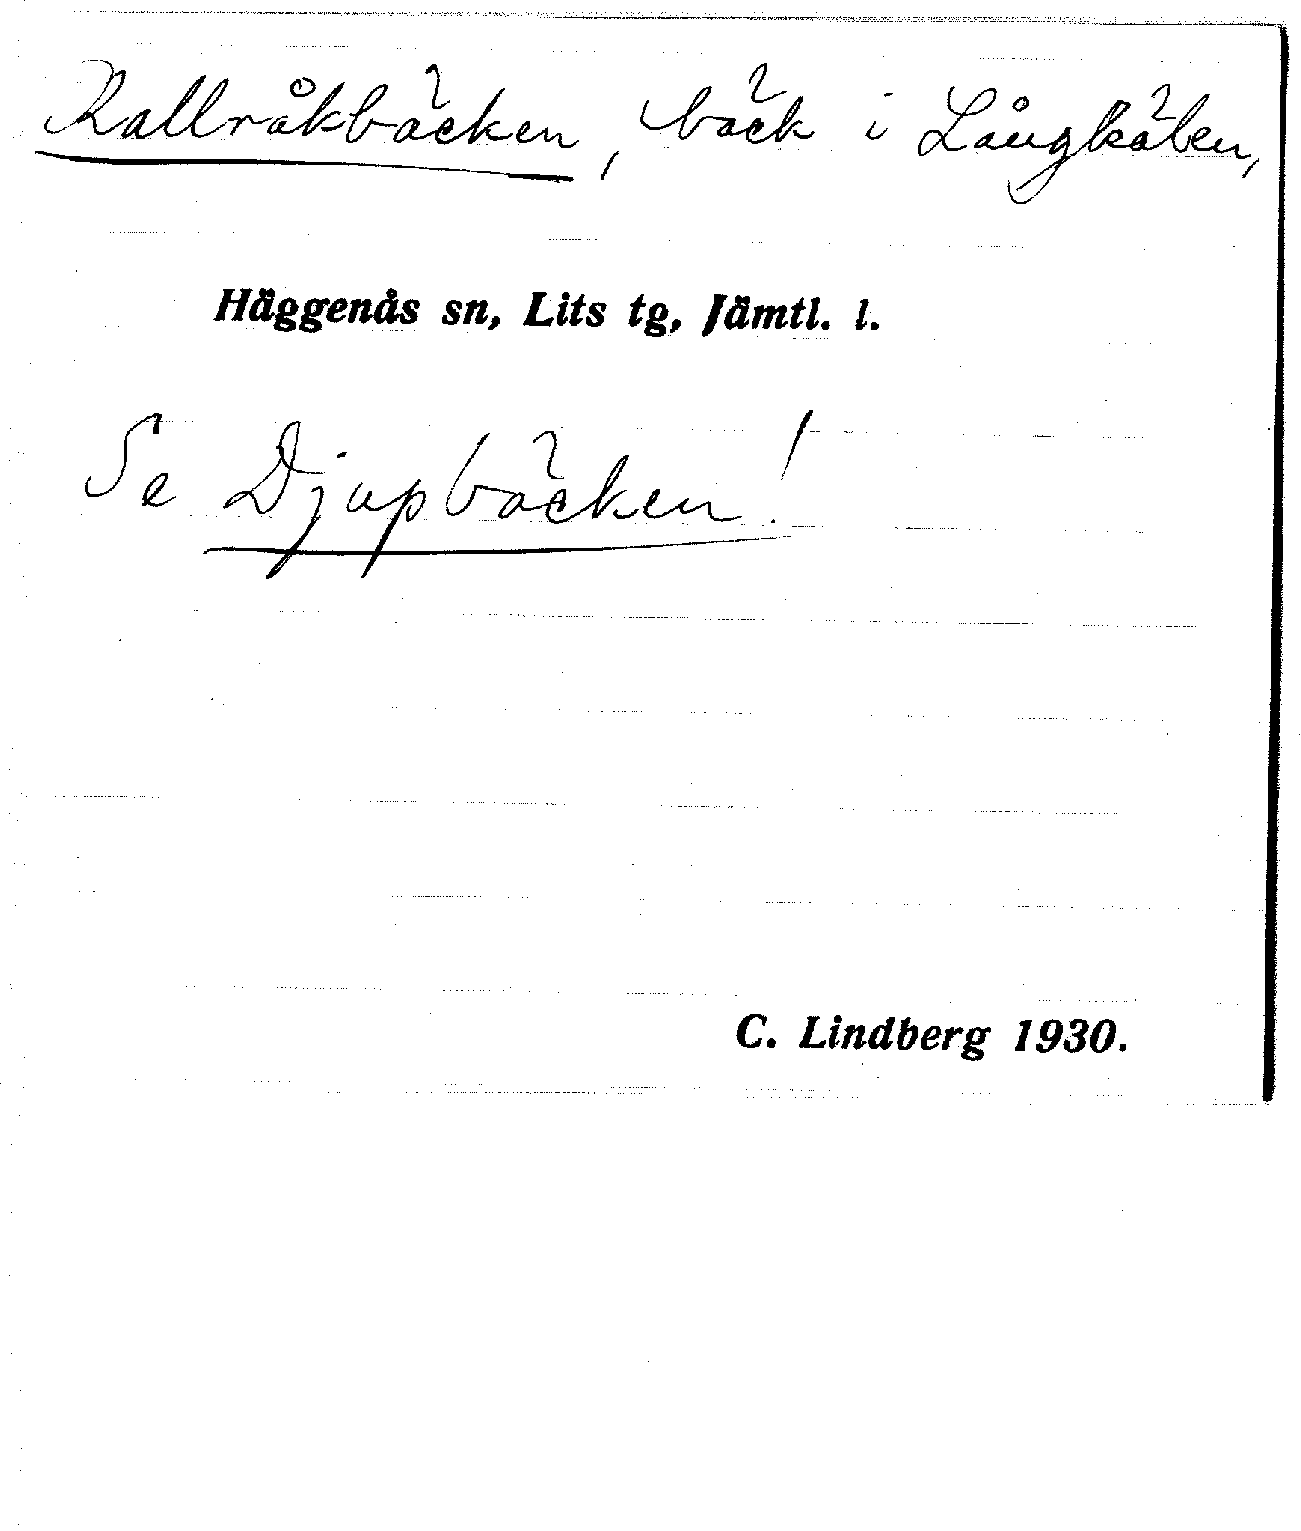 Kallråkbäcken, bäck i Långkälen,
Häggenås sn, Lits tg, Jämtl. l.
Se Djupbäcken!
C. Lindberg 1930.